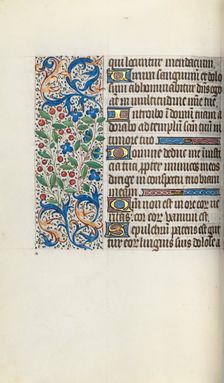 qui locuntur mendacium.
Virum sanguinum et dolo
sum abhominabitur dns ego
at in multitudine mie tue
Introibo i domu tuam a
dorabo ad templu san tu in
timore tuo
Domine deduc me i iusti
cia tua ppter inimicos meos
dirige in conspectu tuo viam
meam
Qm non est in ore eor ve
ritas cor eor vanum est
Sepulchru patens est gut
tur eor linguis suis dolose a